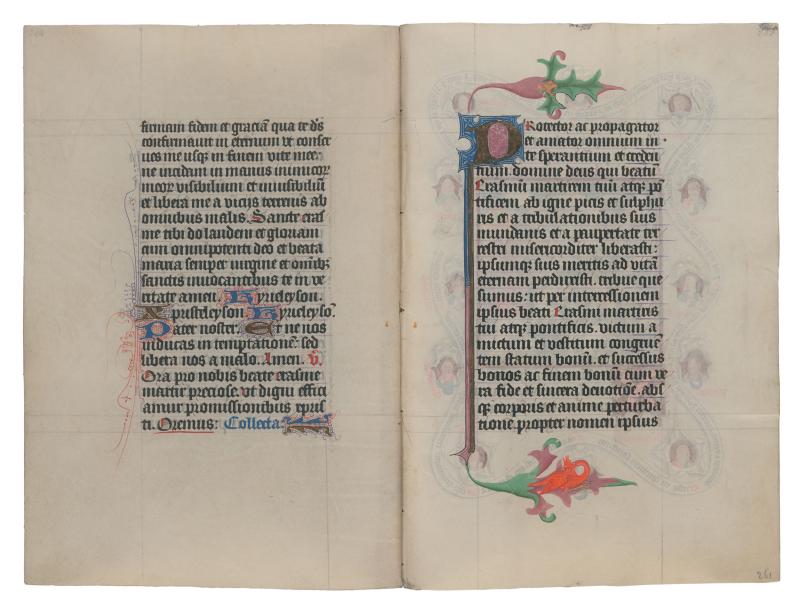 firmam fidem et graciã qua te d̃s
confirmauit in eternum ut conser
ues me usqʒ in finem vite mee:
ne incidam in manus inimicor
meor visibilium et inuisibiliũ
et libera me a vicijs terrenis ab
omnibus malis. Sancte eras
me tibi do laudem et gloriam
cum omnipotenti deo et beata
maria semper virgine et om̃ibʒ
sanctis inuocantibus te in ve
ritate amen. Kyrieleyson.
Xpristeleyson Kyrieleyso᷑.
Pater noster. Et ne nos
inducas in temptatione᷑: sed
libera nos a malo. Amen. V̓
Ora pro nobis beate erasme
martir preciose. vt digni effici
amur promissionibus xpris
ti. Oremus: Collecta
PRotector ac propagator
et amator omnium in
te sperantium et creden
tium. domine deus qui beatũ
Erasmũ martirem tuũ atqʒ põ
tificem ab igne picis et sulphu
ris et a tribulationibus suis
mundanis et a paupertate ter
restri misericorditer liberasti:
ipsumqʒ suis meritis ad vitã
eternam perduxisti. tribue que
sumus: ut per intercessionem
ipsius beati Erasmi martiris
tui atqʒ pontificis. victum a
mictum et vestitum congruẽ
tem statum bonũ. et successus
bonos ac finem bonũ cum ve
ra fide et sincera deuotiõe. abs
qʒ corporis et anime perturba
tione propter nomen ipsius
261